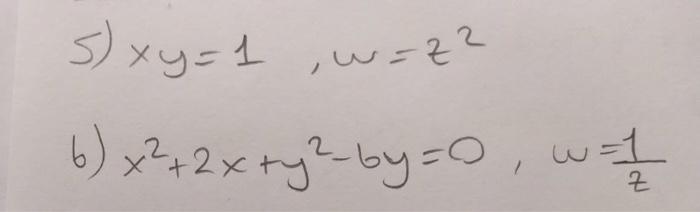 5) xy = 1 , w = z²
6) x² + 2x + y² - 6y = 0 , w = 1/z